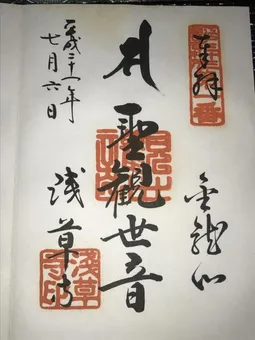 奉拝
金龍山
聖觀世音
浅草寺
淺草寺印
平成二十一年
七月六日